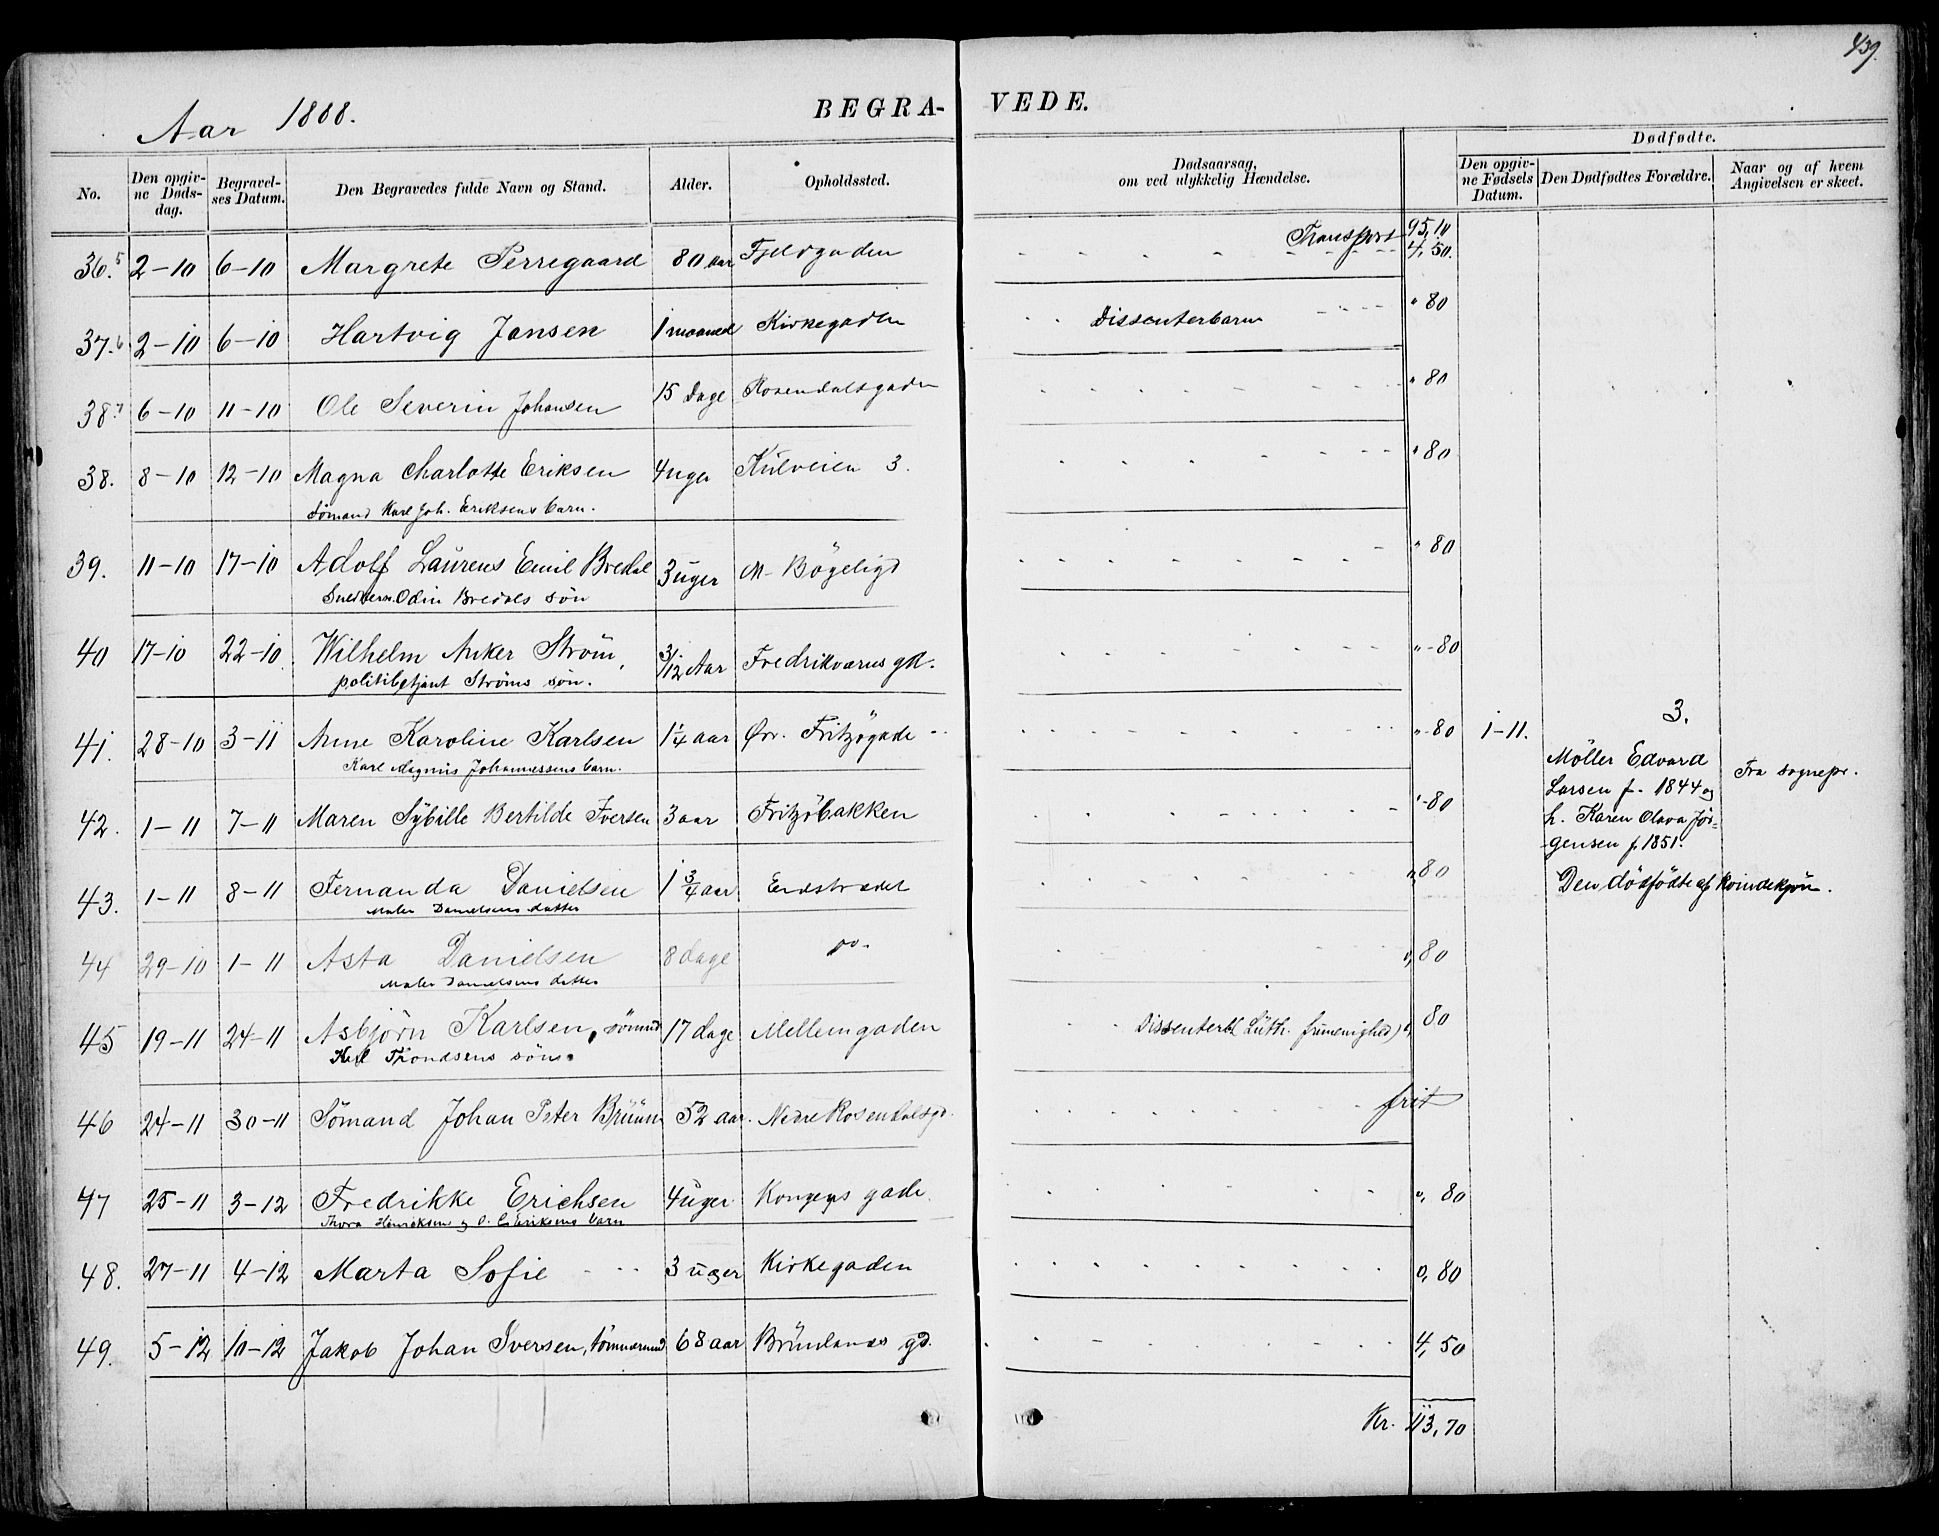 439.
Aar 1888.
BEGRA-VEDE.
No. Den opgivne Dødsdag. Begravelses Datum. Den Begravedes fulde Navn og Stand. Alder. Opholdssted. Dødsaarsag, om ved ulykkelig Hændelse. Dødfødte. Den opgivne Fødsels Datum. Den Dødfødtes Forældre. Naar og af hvem Angivelsen er skeet.
Transport 95,10
36.5 2-10 6-10 Margrete Perregaard 80 aar Fjeldgaden 4,50.
37.6 2-10 6-10 Hartvig Jansen 1 maaned Kirkegaden Dissenterbarn " 80
38.7 6-10 11-10 Ole Severin Johansen 15 dage Rosendalsgaden " 80
38. 8-10 12-10 Magna Charlotte Eriksen 4 uger Kulveien 3. " 80
Sømand Karl Joh. Eriksens barn.
39. 11-10 17-10 Adolf Laurens Emil Bredal 3 uger M- Bögeligd " 80
Snedkerm. Odin Bredals søn
40 17-10 22-10. Wilhelm Anker Strøm, 3/12 Aar Fredriksværns gd. "-80
politibetjent Strøms søn.
41. 28-10 3-11 Anne Karoline Karlsen 1 1/4 aar Øv. Fritzögade "-80 1-11. 3.
Karl Magnus Johannessens barn.
Möller Edvard
Larsen f. 1844 og Fra sognepr.
42. 1-11 7-11 Maren Sybille Bertilde Iversen 3 aar Fritzöbakken "-80
h. Karen Olava Jör-
gensen f. 1851.
43. 1-11 8-11 Fernanda Danielsen 1 3/4 aar Endstrædet " 80 Den dödfödte af kvindekjön.
Maler Danielsens datter
44 29-10 1-11 Asta Danielsen 8 dage do- " 80
Maler Danielsens datter
45 19-11 24-11 Asbjörn Karlsen, sömand 17 dage Mellemgaden Dissenterb( Luth. frimenighed) " 80
Karl Trondsens søn.
46 24-11 30-11 Sömand Johan Peter Bruun 52 aar. Nedre Rosendalsgd. frit
47 25-11 3-12 Fredrikke Erichsen 4 uger Kongens gade. ", 80
Thora Henriksen og O. C. Eriksens barn
48. 27-11 4-12 Marta Sofie 3 uger Kirkegaden 0, 80
49. 5-12 10-12 Jakob Johan Iversen, tömmermd 68 aar Brünlanes gd. 4, 50
Kr. 113,70